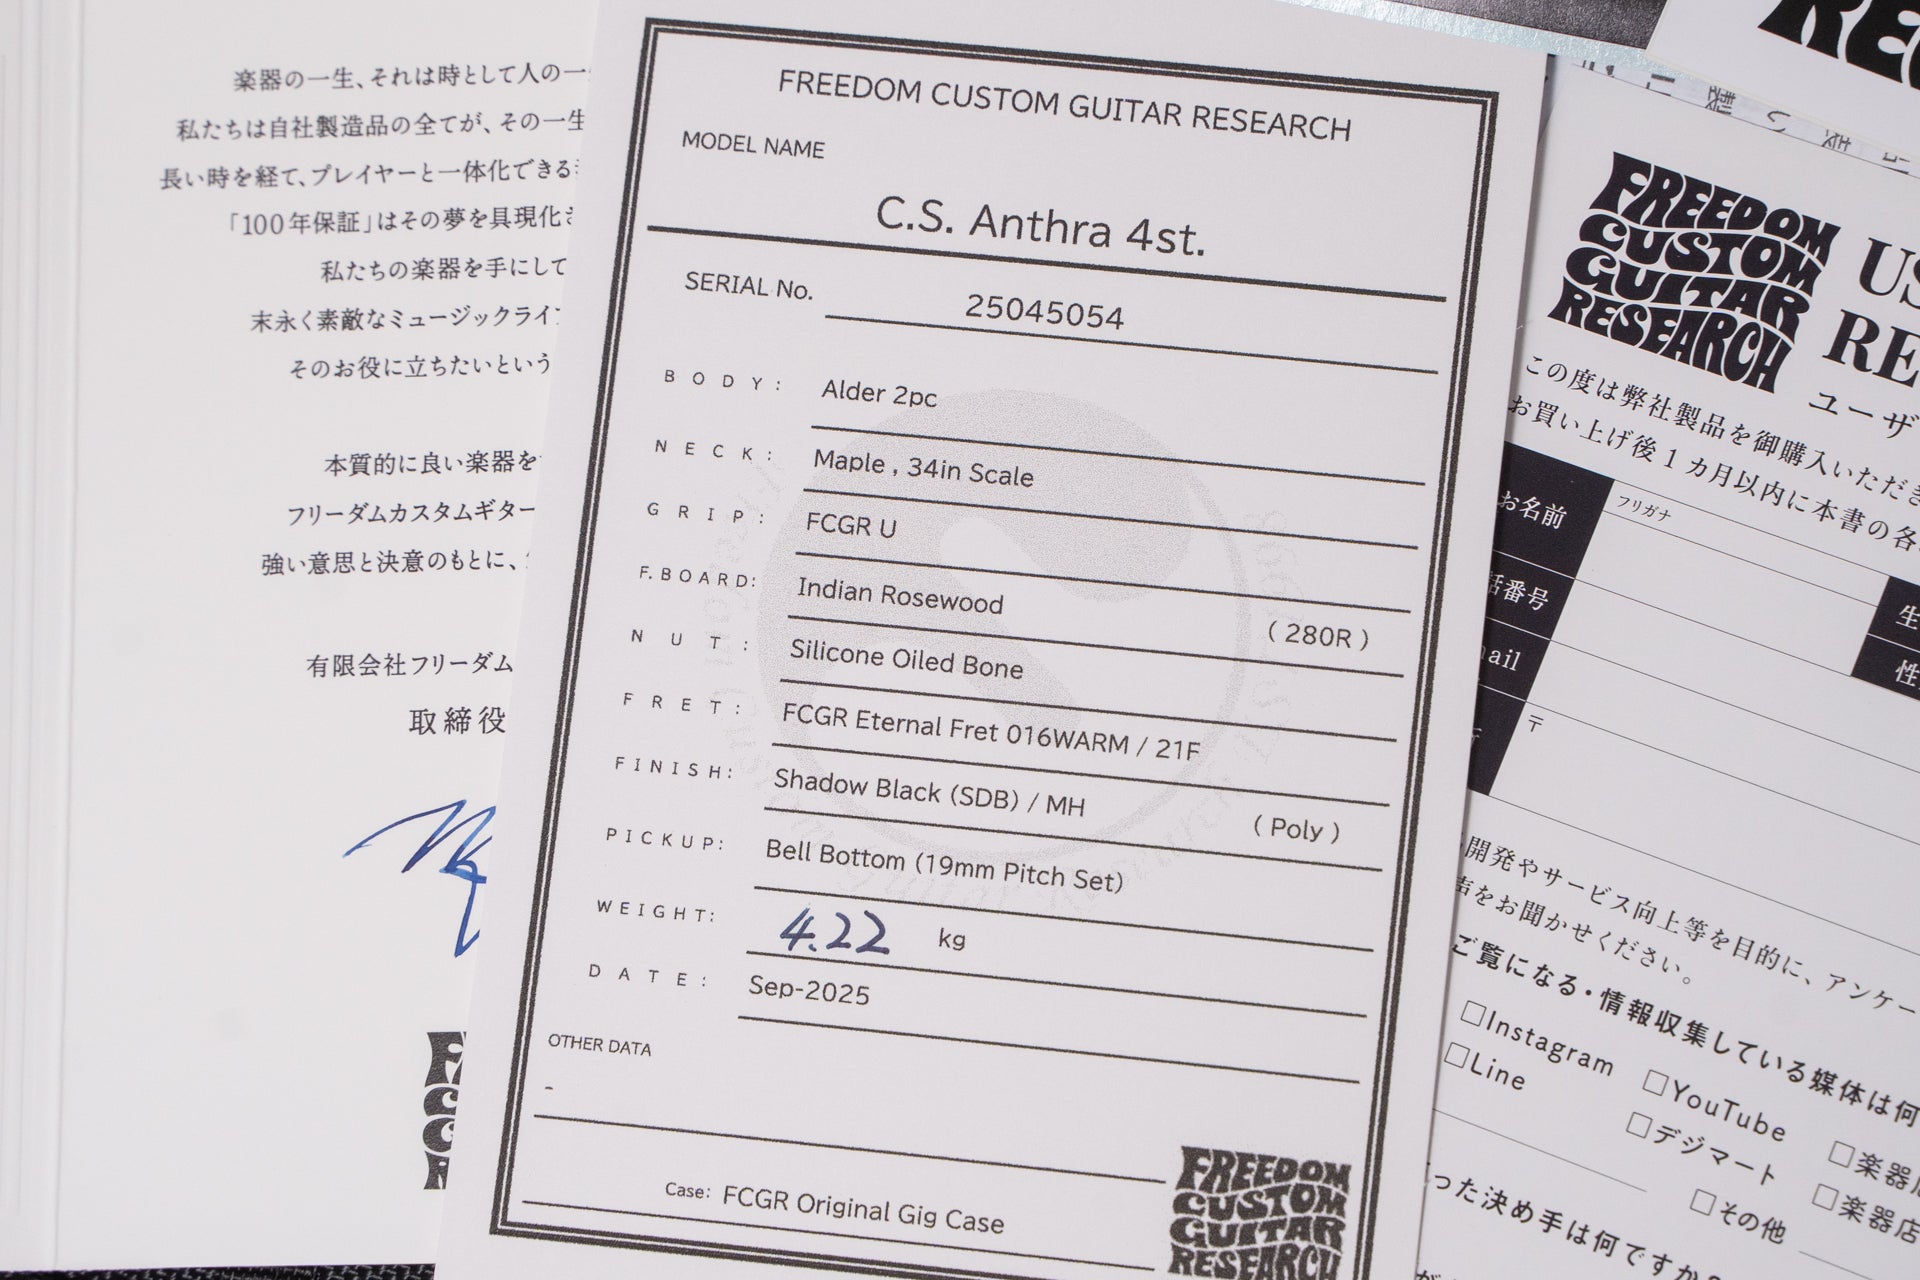 楽器の一生、それは時として人の一
私たちは自社製造品の全てが、その一生
長い時を経て、プレイヤーと一体化できる
「100年保証」はその夢を具現化
私たちの楽器を手にして
末永く素敵なミュージックライ
そのお役に立ちたいという
本質的に良い楽器を
フリーダムカスタムギター
強い意思と決意のもとに、
有限会社フリーダム
取締役
FREEDOM CUSTOM GUITAR RESEARCH
MODEL NAME
C.S. Anthra 4st.
SERIAL No. 25045054
BODY: Alder 2pc
NECK: Maple , 34in Scale
GRIP: FCGR U
F.BOARD: Indian Rosewood ( 280R )
NUT: Silicone Oiled Bone
FRET: FCGR Eternal Fret 016WARM / 21F
FINISH: Shadow Black (SDB) / MH ( Poly )
PICKUP: Bell Bottom (19mm Pitch Set)
WEIGHT: 4.22 kg
DATE: Sep-2025
OTHER DATA
-
Case: FCGR Original Gig Case
FREEDOM
CUSTOM
GUITAR
RESEARCH
FREEDOM
CUSTOM
GUITAR
RESEARCH
US
RE
ユーザ
この度は弊社製品を御購入いただき
お買い上げ後1カ月以内に本書の各
お名前
フリガナ
話番号
生
ail
性
〒
開発やサービス向上等を目的に、アンケー
声をお聞かせください。
ご覧になる・情報収集している媒体は何
□Instagram
□YouTube
□楽器
□Line
□デジマート
□楽器店
□その他
った決め手は何ですか